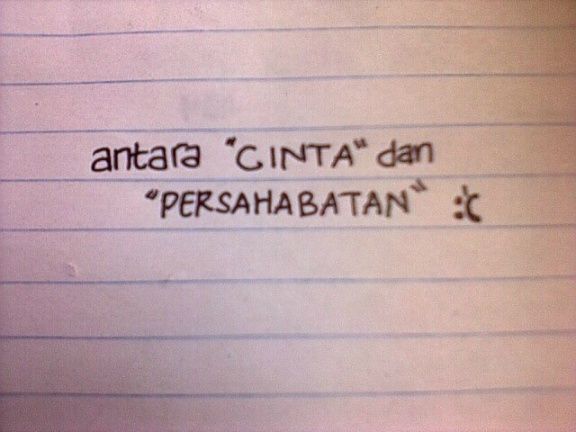 antara "CINTA" dan
"PERSAHABATAN" :'(